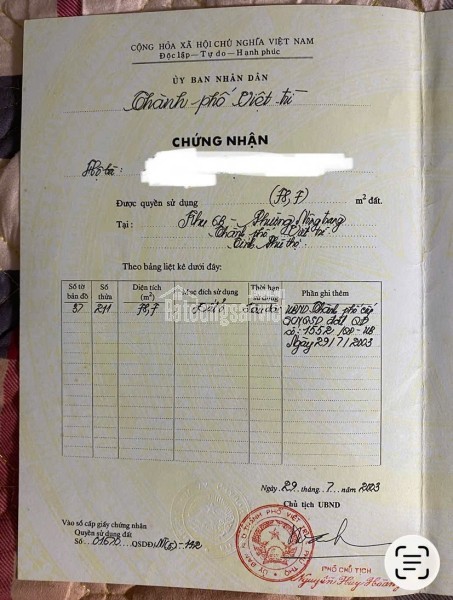 CỘNG HÒA XÃ HỘI CHỦ NGHĨA VIỆT NAM
Độc lập - Tự do - Hạnh phúc
ỦY BAN NHÂN DÂN
Thành phố Việt trì
CHỨNG NHẬN
Hộ bà
Được quyền sử dụng m² đất.
Tại : Khu - Phường Nông trang
Thành phố Việt trì
Tỉnh Phú thọ
Theo bảng liệt kê dưới đây:
Số tờ bản đồ Số thửa Diện tích (m²) Mục đích sử dụng Thời hạn sử dụng Phần ghi thêm
37 211 Đất ở Lâu dài UBND Thành phố cấp
GCNQSD đất QĐ
số: 1552/QĐ-UB
Ngày 29/7/2003
batdongsan
Ngày 29 tháng 7 năm 2003
Chủ tịch UBND
Vào sổ cấp giấy chứng nhận
Quyền sử dụng đất
Số 01670 QSDĐ/
PHÓ CHỦ TỊCH
Nguyễn Huy Hoàng